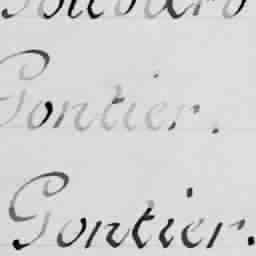 Gontier.
Gontier.